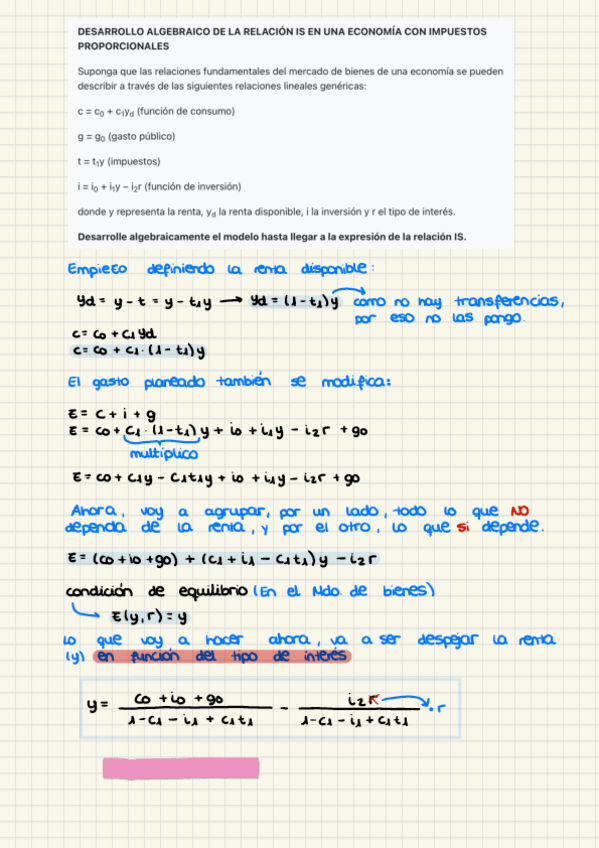 DESARROLLO ALGEBRAICO DE LA RELACIÓN IS EN UNA ECONOMÍA CON IMPUESTOS
PROPORCIONALES
Suponga que las relaciones fundamentales del mercado de bienes de una economía se pueden
describir a través de las siguientes relaciones lineales genéricas:
c = c₀ + c₁y_d (función de consumo)
g = g₀ (gasto público)
t = t₁y (impuestos)
i = i₀ + i₁y – i₂r (función de inversión)
donde y representa la renta, y_d la renta disponible, i la inversión y r el tipo de interés.
Desarrolle algebraicamente el modelo hasta llegar a la expresión de la relación IS.
Empiezo definiendo la renta disponible:
Yd = y - t = y - t₁y → Yd = (1 - t₁)y como no hay transferencias,
por eso no las pongo.
c = c₀ + c₁Yd
c = c₀ + c₁·(1 - t₁)y
El gasto planeado también se modifica:
E = c + i + g
E = c₀ + c₁·(1 - t₁)y + i₀ + i₁y - i₂r + g₀
multiplico
E = c₀ + c₁y - c₁t₁y + i₀ + i₁y - i₂r + g₀
Ahora, voy a agrupar, por un lado, todo lo que NO
dependa de la renta, y por el otro, lo que si depende.
E = (c₀ + i₀ + g₀) + (c₁ + i₁ - c₁t₁)y - i₂r
condición de equilibrio (En el Mdo. de bienes)
E(y,r) = y
lo que voy a hacer ahora, va a ser despejar la renta
(y) en función del tipo de interés
y = (c₀ + i₀ + g₀) / (1 - c₁ - i₁ + c₁t₁) - (i₂r) / (1 - c₁ - i₁ + c₁t₁) · r